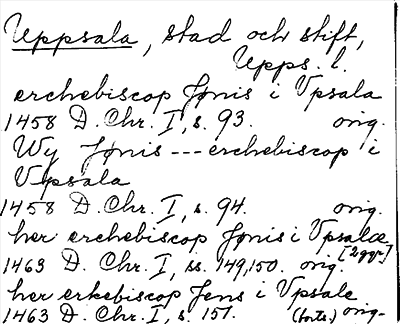 Uppsala, stad och stift,
Upps. l.
erchebiscop Jønis i Vpsala
1458 D. Chr. I, s. 93. orig.
Wy Jønis --- erchebiscop i
Vpsala
1458 D. Chr. I, s. 94. orig.
her erchebiscop Jønis i Vpsalæ
1463 D. Chr. I, ss. 149, 150. orig. [2 ggr]
her erkebiscop Jens i Vpsale
1463 D. Chr. I, s. 151. (forts.) orig.